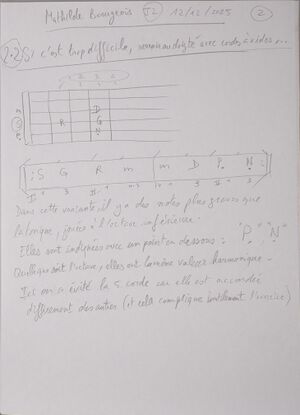 Mathilde Bourgeois J2 12/12/2025 2
2.2 Si c'est trop difficile, revenir au doigté avec cordes à vides...
1 2 3 4
D
R G
N
S G R m m D P N
Dans cette variante, il y a des notes plus graves que
la tonique, jouées à l'octave inférieure.
Elles sont indiquées avec un point en dessous : "P", "N"
Quelle que soit l'octave, elles ont la même valeur harmonique.
Ici on a évité la 5. corde car elle est accordée
différement des autres (et cela complique inutilement l'exercice)